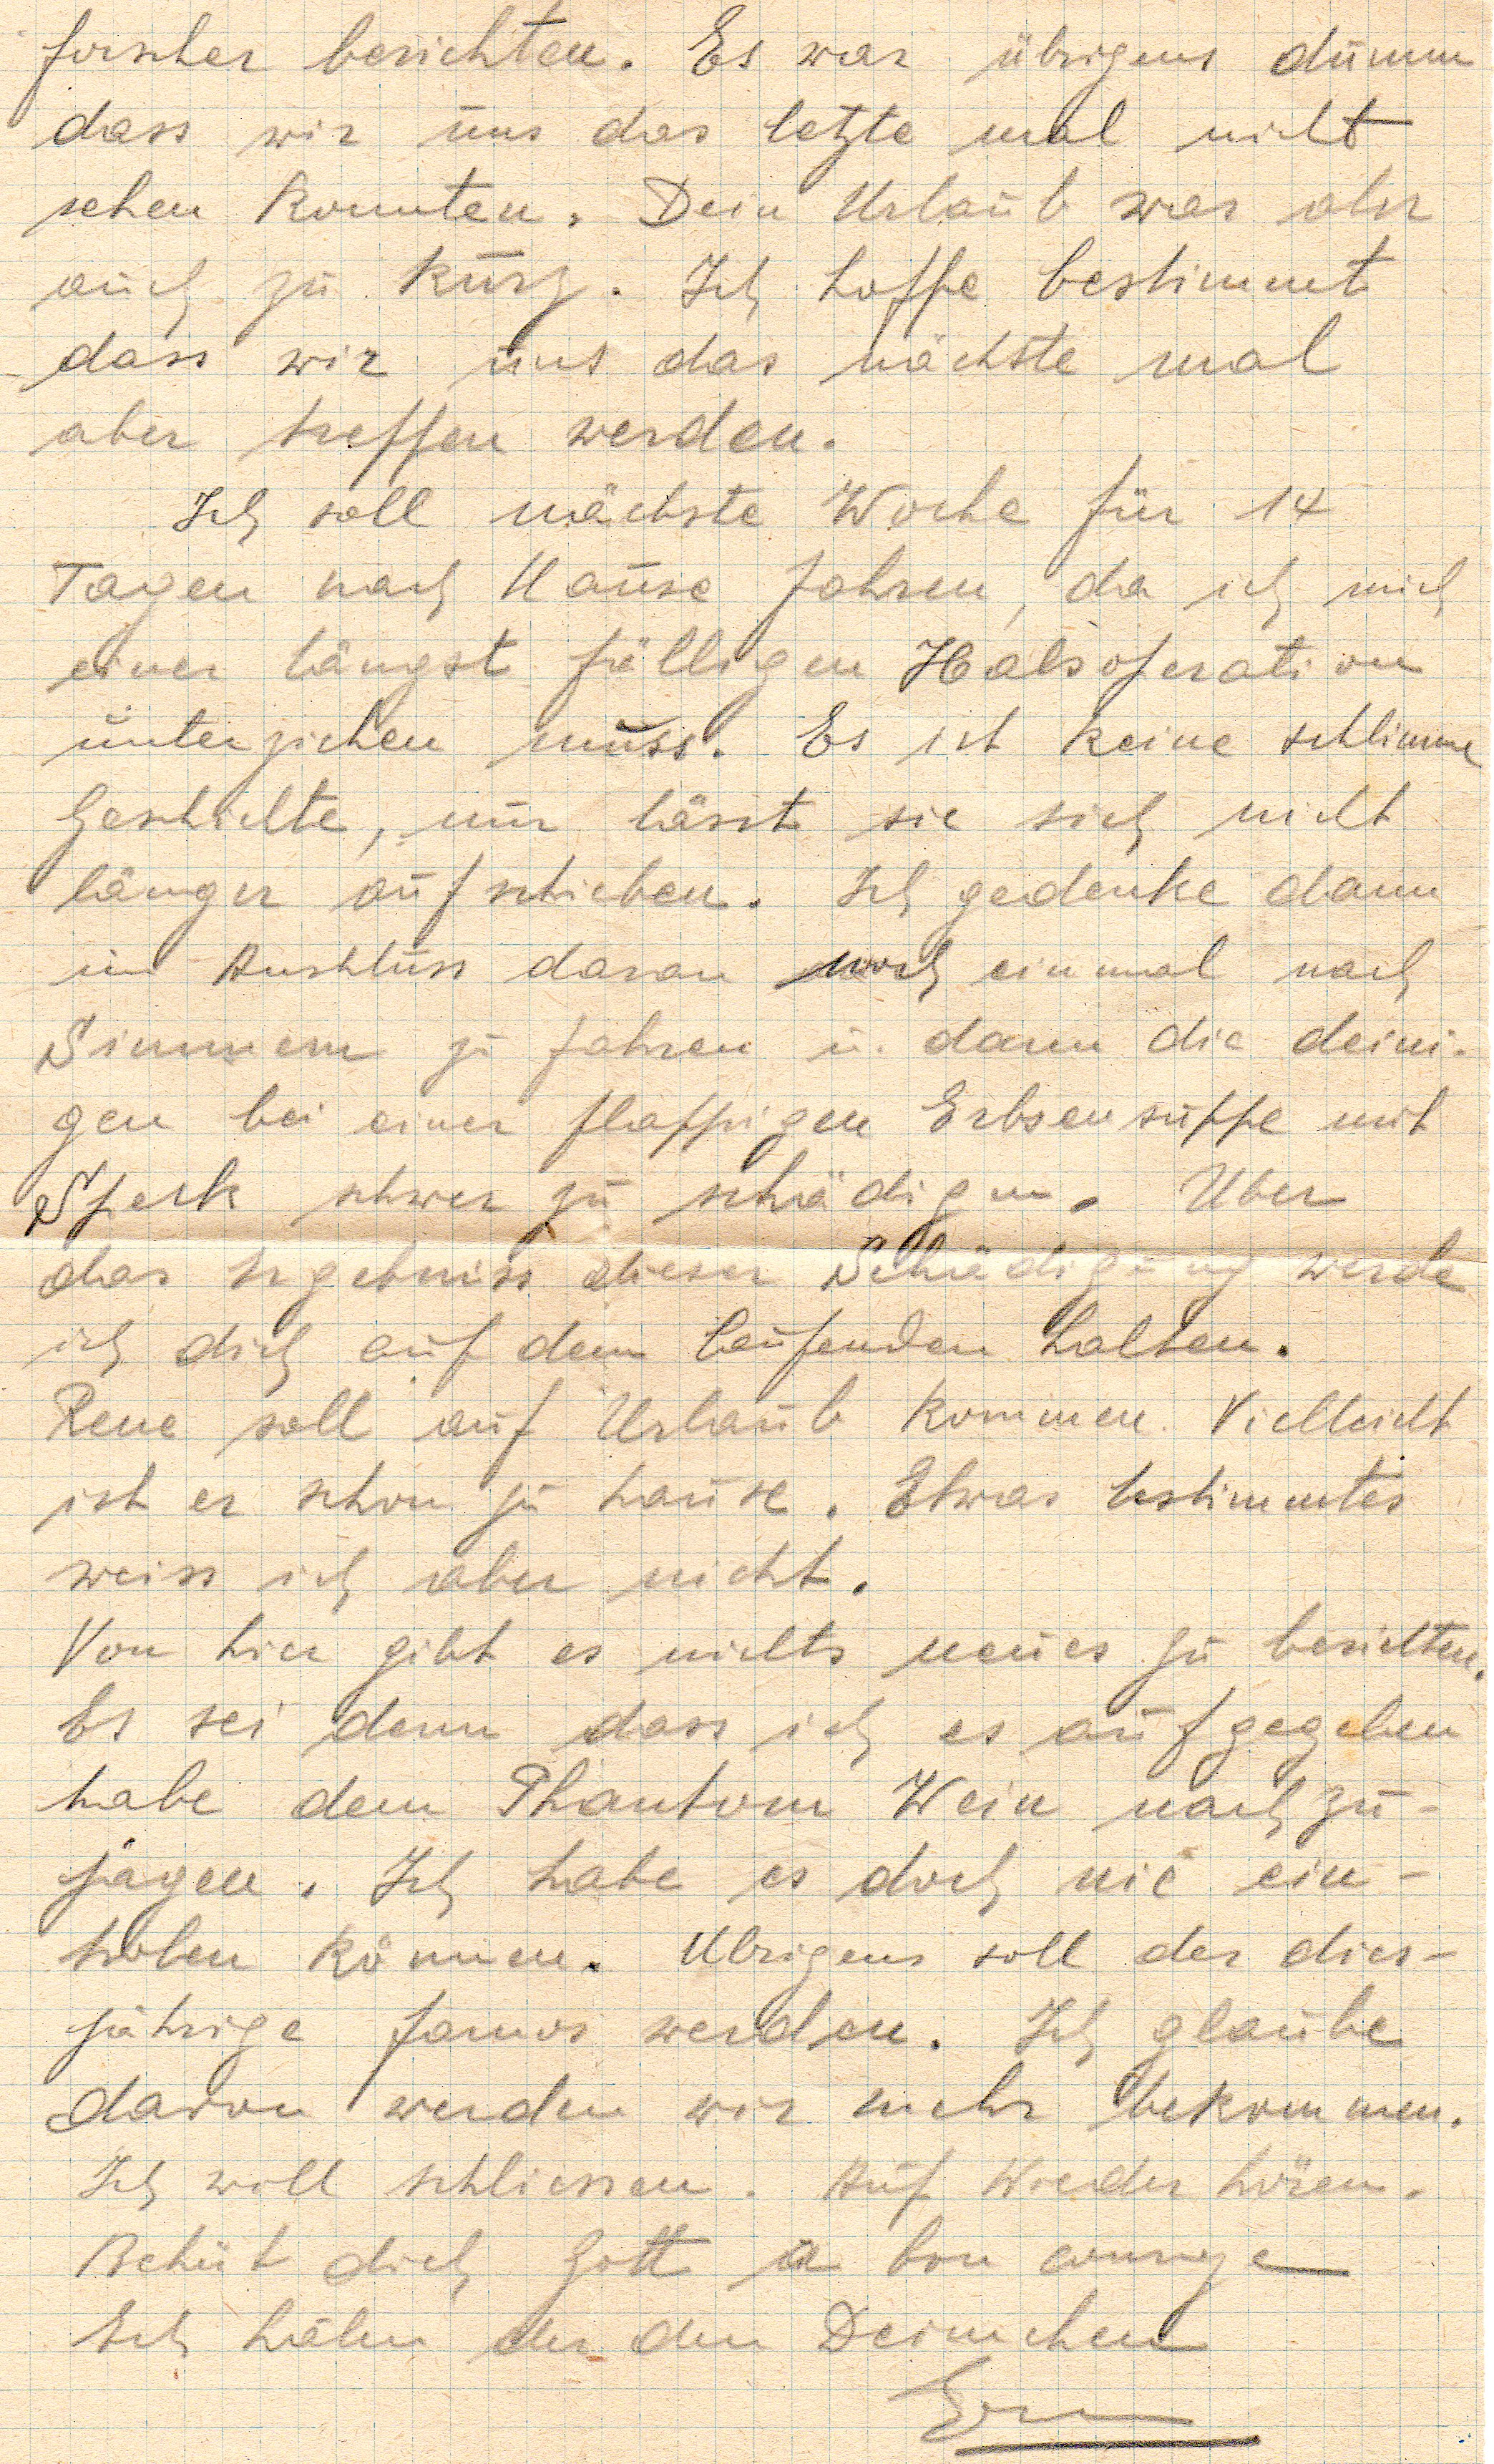 forscher berichten. Es war übrigens dumm
dass wir uns das letzte mal nicht
sehen konnten. Dein Urlaub war aber
auch zu kurz. Ich hoffe bestimmt
dass wir uns das nächste mal
aber treffen werden.
Ich soll nächste Woche für 14
Tagen nach Hause fahren, da ich mich
einer längst fälligen Halsoperation
unterziehen muss. Es ist keine schlimme
Geschichte, nur lässt sie sich nicht
länger aufschieben. Ich gedenke dann
im Anschluss daran noch einmal nach
Simmern zu fahren u. dann die deini-
gen bei einer Erbsensuppe mit
Speck schwer zu schädigen. Uber
das Ergebniss dieser Schädigung werde
ich dich auf dem laufenden halten.
Rene soll auf Urlaub kommen. Vielleicht
ist er schon zu hause. Etwas bestimmtes
weiss ich aber nicht.
Von hier gibt es nichts neues zu berichten.
Es sei denn dass ich es aufgegeben
habe dem Phantom Wein nachzu-
jagen. Ich habe es doch nie ein-
holen können. Ubrigens soll der dies-
jährige famos werden. Ich glaube
davon werden wir mehr bekommen.
Ich will schliessen. Auf Wieder hören.
Behüt dich Gott a bon courage
den